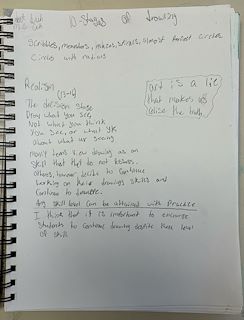 D-Stages of drawing
Scribbles, mandalas, almost perfect circles
Circles with radials
art is a lie
that makes us
relise the truth
Realism
(13-16)
The decision stage
Draw what you see,
Not what you think
You see, or what you
about what ur seeing
many teens view drawing as an
skill that they do not possess.
others, however, decide to continue
working on their drawings skills and
continue to
Any skill level can be attained with practice
I think that it is important to encourage
students to continue drawing despite their level
of skill